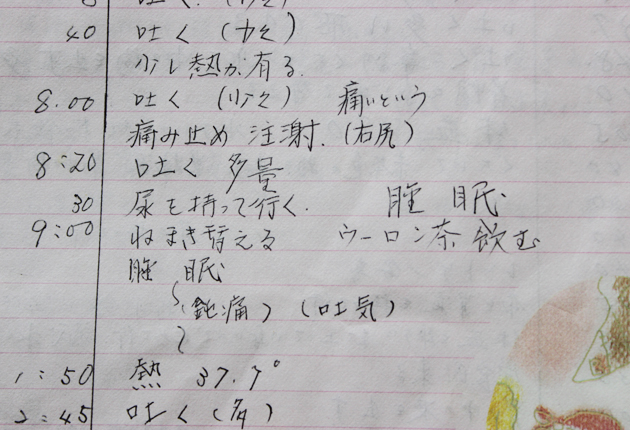 40 吐く (少々)
少し熱が有る.
8.00 吐く (少々) 痛いという
痛み止め 注射. (右尻)
8:20 吐く 多量
30 尿を持って行く. 睡眠
9:00 ねまき替える ウーロン茶飲む
睡眠
(鈍痛) (吐気)
1:50 熱 37.7°
2:45 吐く (多)